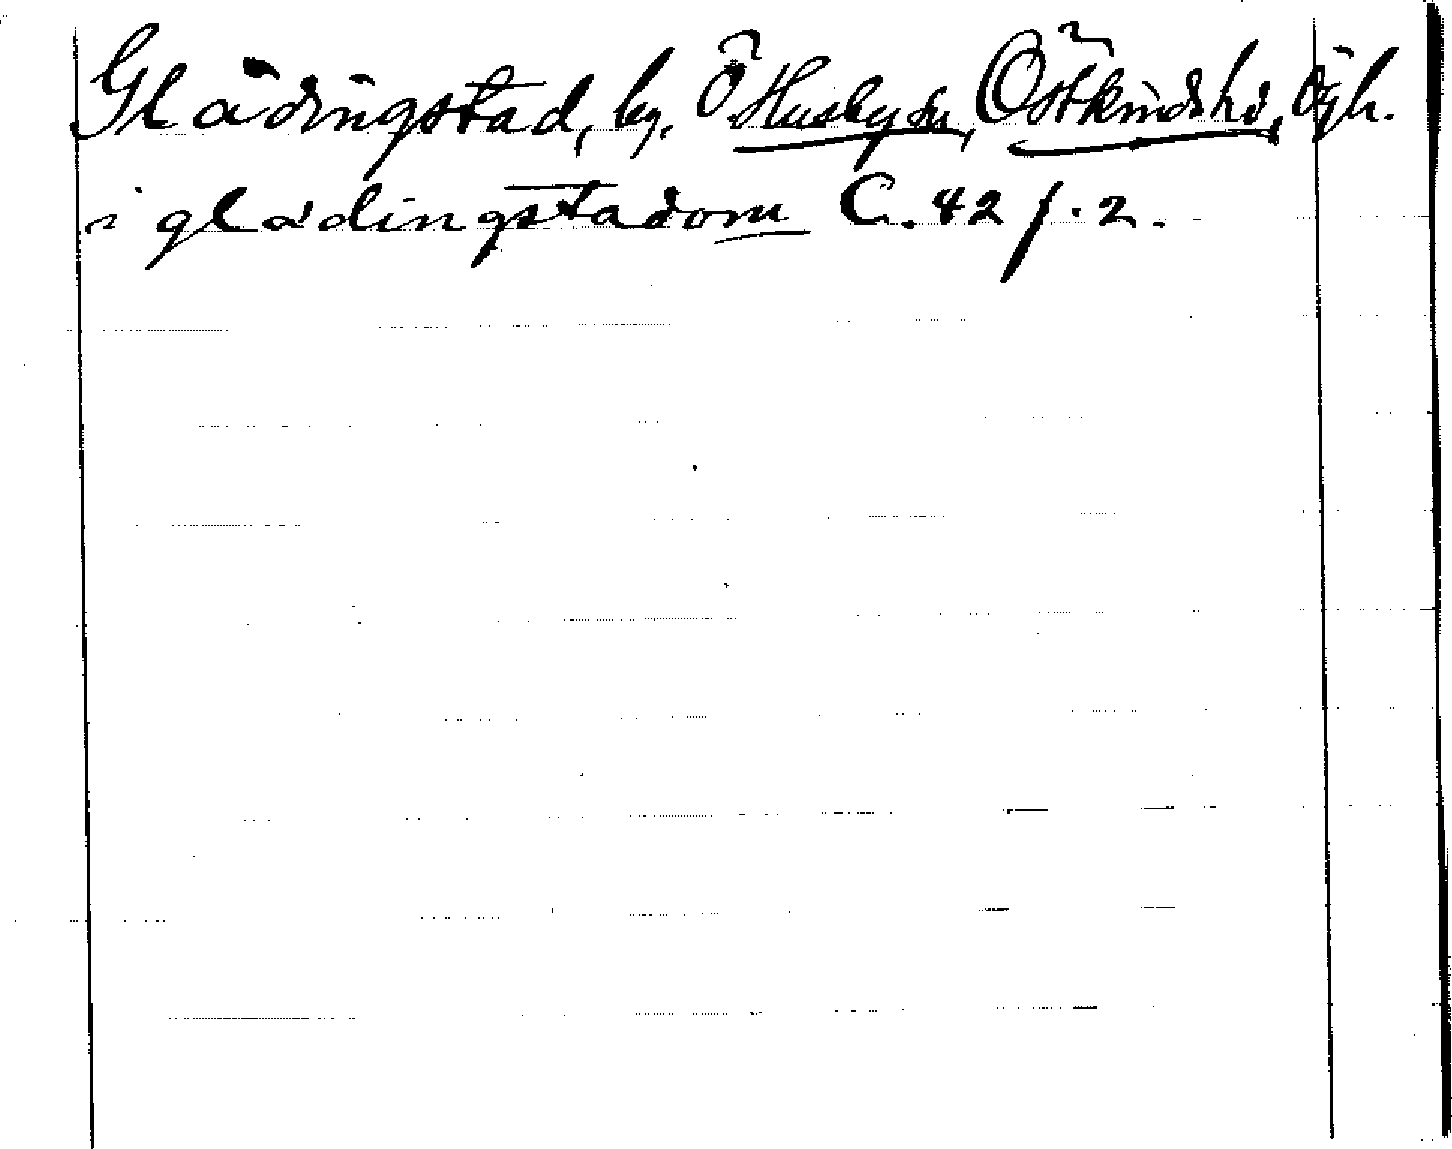 Glädingstad, by, Ö Husby sn, Östkinds hd, Ögl.
i glædingstadom C. 42 f. 2.